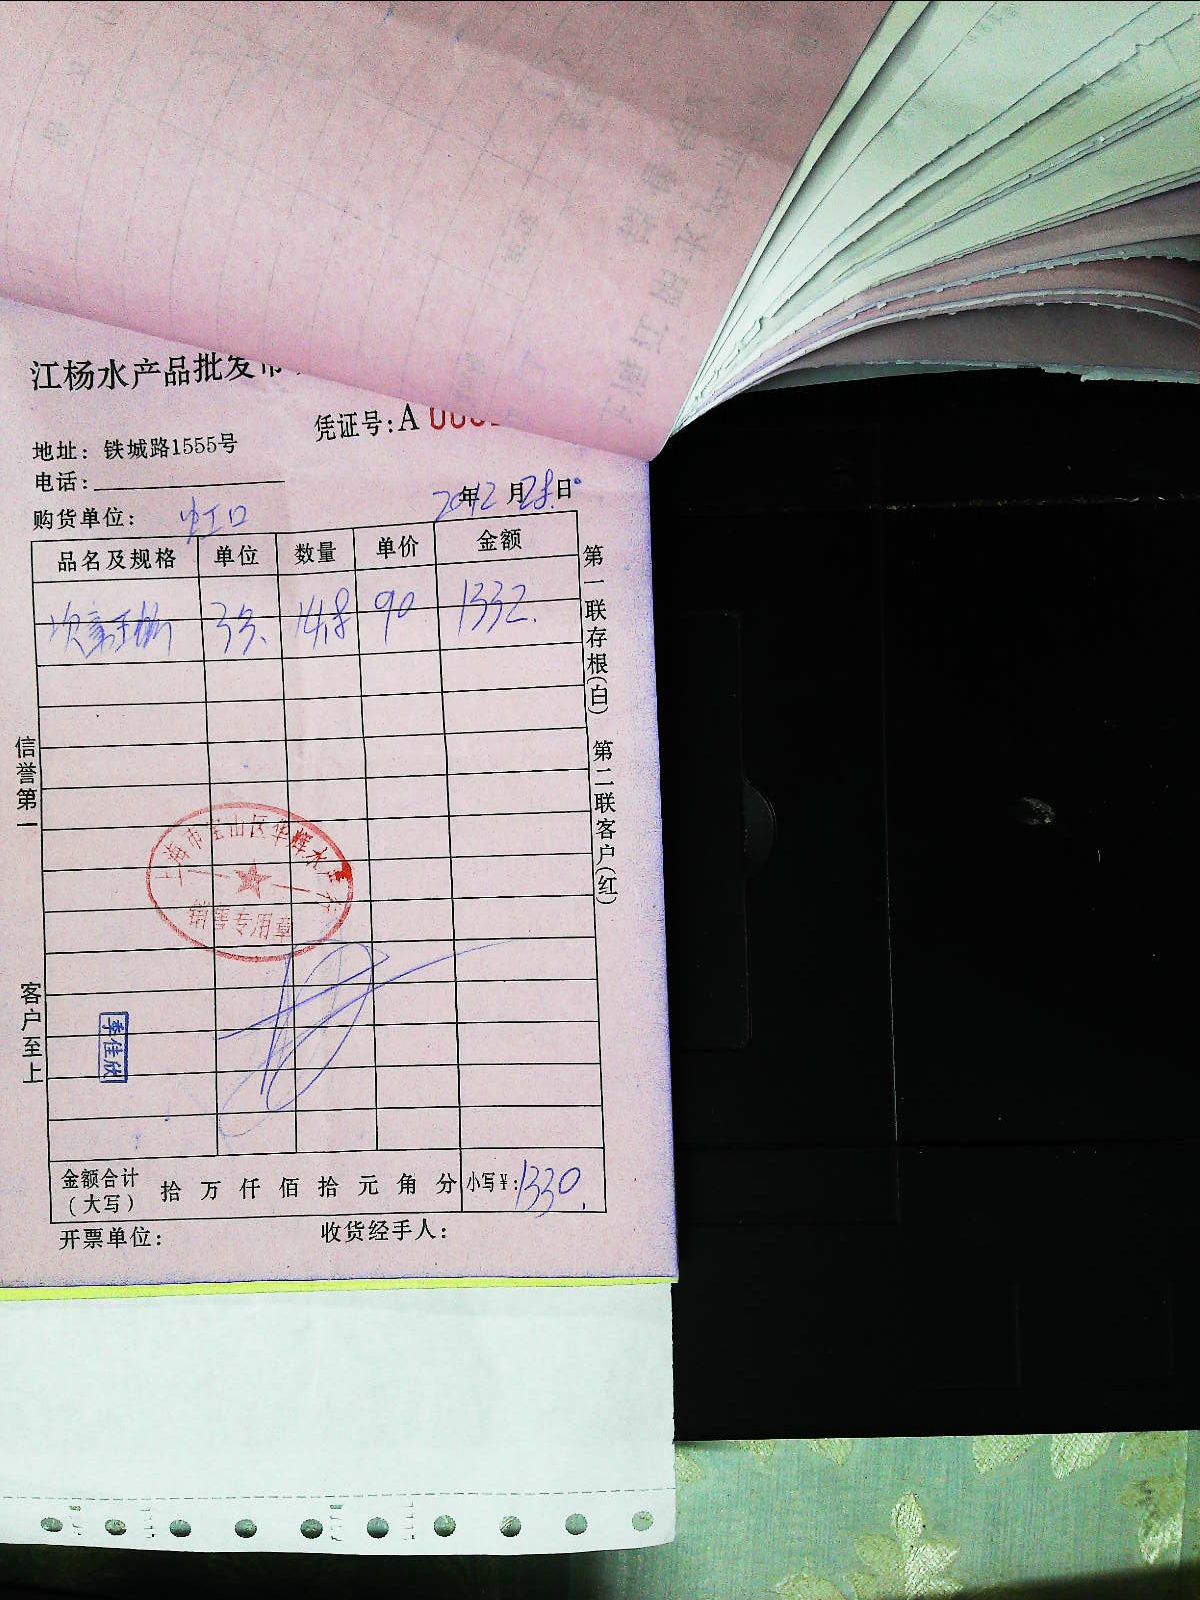 江杨水产品批发市
凭证号:A
地址: 铁城路1555号
电话:
购货单位: 虹口
年12月28日
品名及规格 单位 数量 单价 金额
14.8 90 1332.
第一联存根(白) 第二联客户(红)
信誉第一
客户至上
上海市宝山区华辉水产行
销售专用章
季佳欣
金额合计(大写) 拾 万 仟 佰 拾 元 角 分 小写¥:1330.
开票单位: 收货经手人: